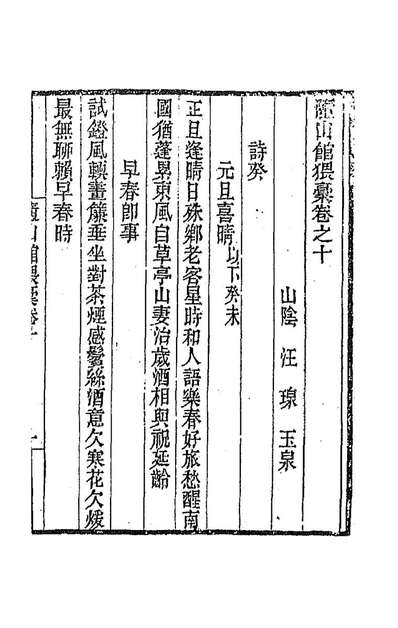 隨山館猥稾卷之十
山陰 汪瑔 玉泉
詩癸
元旦喜晴以下癸未
正旦逢晴日殊鄉老客星時和人語樂春好旅愁醒南
國猶蓬累東風自草亭山妻治歲酒相與祝延齡
早春卽事
試鐙風輭畫簾垂坐對茶煙感鬢絲酒意欠寒花欠煖
最無聊賴早春時